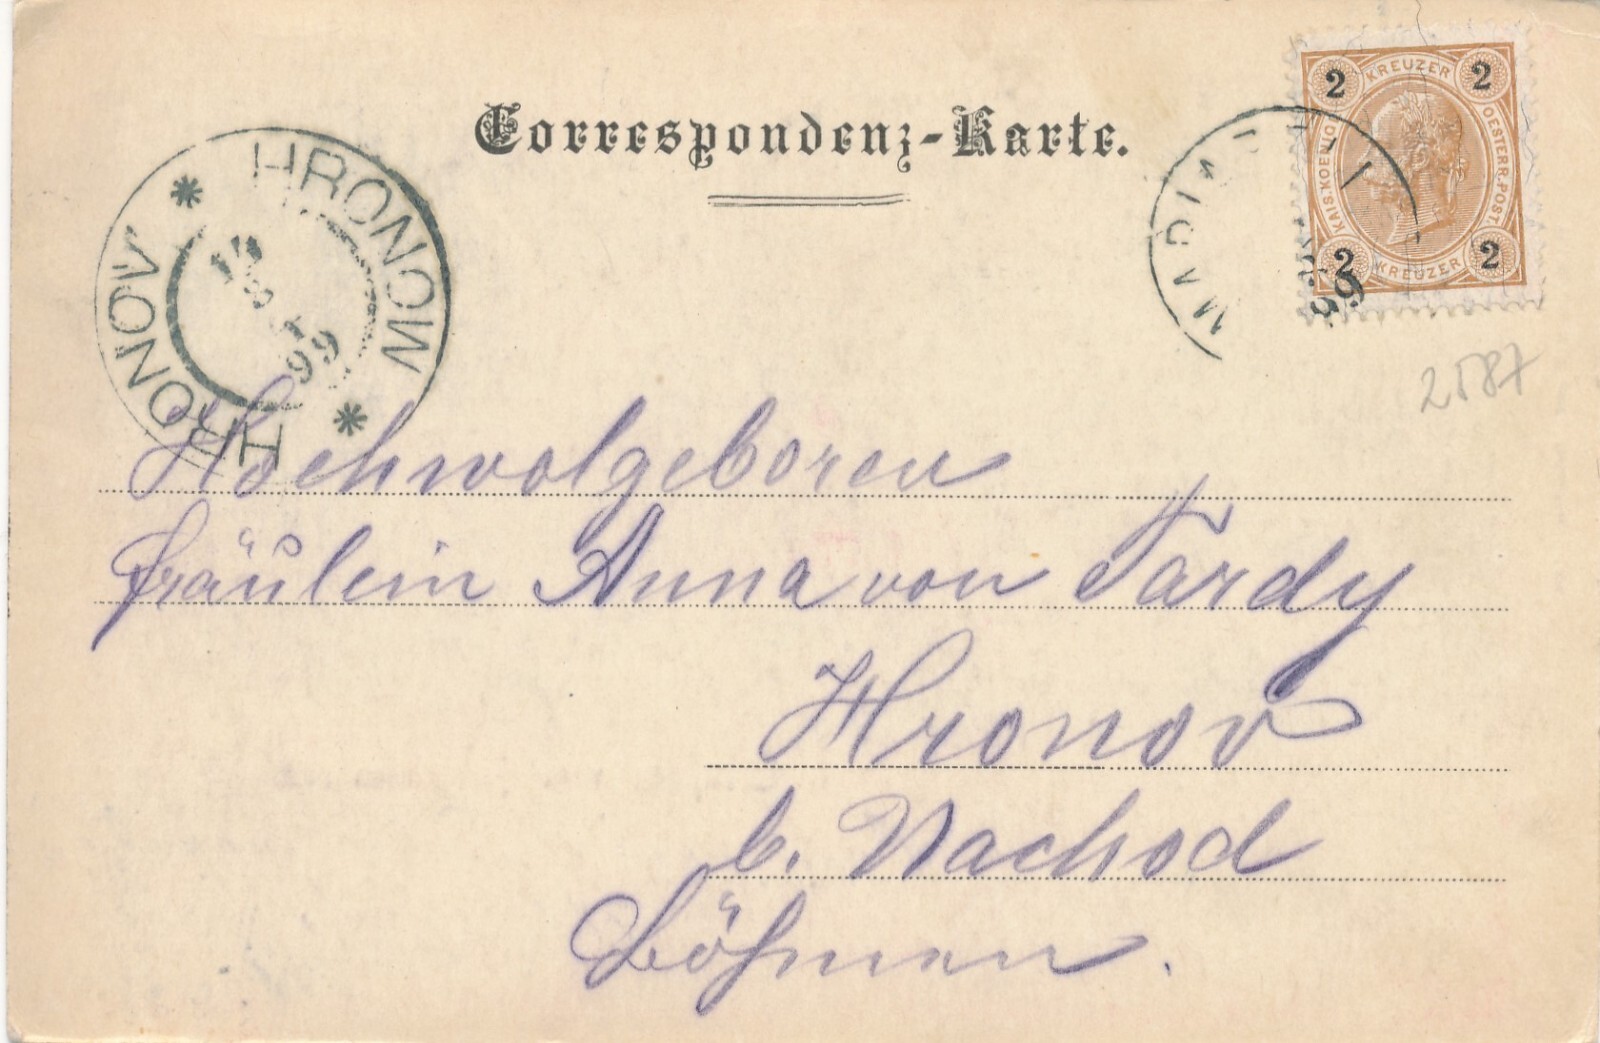 Correspondenz-Karte.
HRONOW
HRONOV
99
2 KREUZER 2
KAIS. KOENIGL. OESTERR. POST
2 KREUZER 2
99
2587
Hochwolgeboren
Fräulein Anna von Tardy
Hronov
b. Nachod
Böhmen.